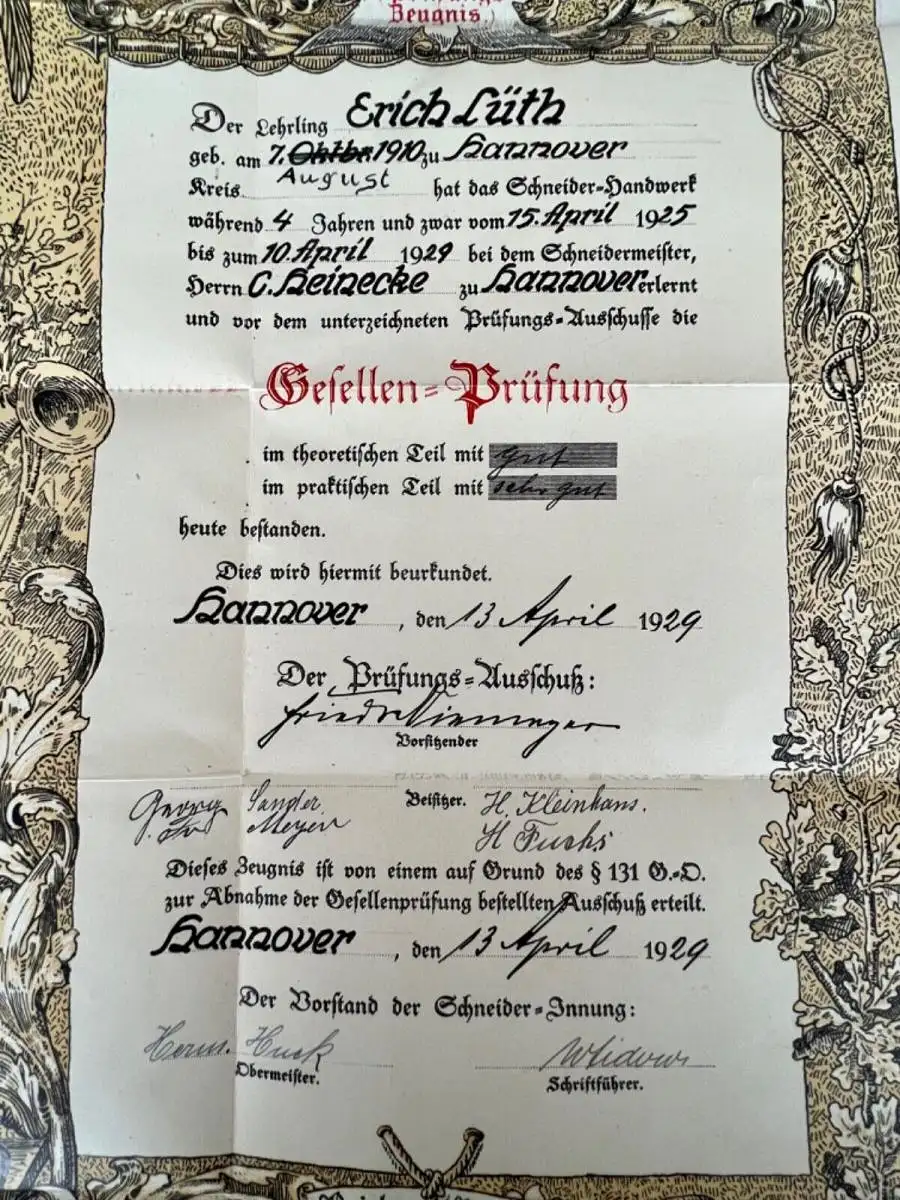 Zeugnis
Der Lehrling Erich Lüth
geb. am 7. Oktbr. 1910 zu Hannover
August
Kreis hat das Schneider-Handwerk
während 4 Jahren und zwar vom 15. April 1925
bis zum 10. April 1929 bei dem Schneidermeister,
Herrn C. Heinecke zu Hannover erlernt
und vor dem unterzeichneten Prüfungs-Ausschusse die
Gesellen-Prüfung
im theoretischen Teil mit gut
im praktischen Teil mit sehr gut
heute bestanden.
Dies wird hiermit beurkundet.
Hannover, den 13 April 1929
Der Prüfungs-Ausschuß:
Friedr Niemeyer
Vorsitzender
Georg Sander Beisitzer. H. Kleinhans.
Fr Meyer H Fuchs
Dieses Zeugnis ist von einem auf Grund des § 131 G.-O.
zur Abnahme der Gesellenprüfung bestellten Ausschuß erteilt.
Hannover, den 13 April 1929
Der Vorstand der Schneider-Innung:
Herm. Huck
Obermeister. Schriftführer.